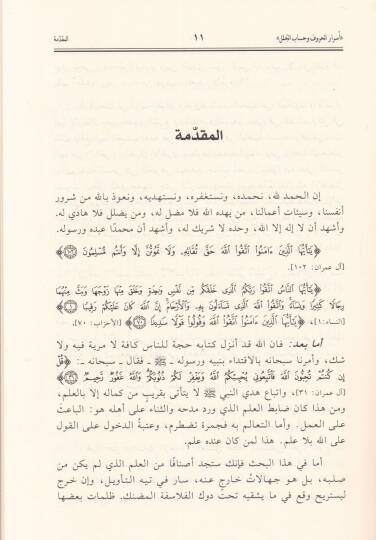 «أسرار الحروف وحساب الجمل» ١١ المقدّمة
المقدّمة
إن الحمد لله، نحمده، ونستغفره، ونستهديه، ونعوذ بالله من شرور
أنفسنا، وسيئات أعمالنا، من يهده الله فلا مضل له، ومن يضلل فلا هادي له.
وأشهد أن لا إله إلا الله، وحده لا شريك له، وأشهد أن محمدًا عبده ورسوله.
﴿يَٰٓأَيُّهَا ٱلَّذِينَ ءَامَنُوا۟ ٱتَّقُوا۟ ٱللَّهَ حَقَّ تُقَاتِهِۦ وَلَا تَمُوتُنَّ إِلَّا وَأَنتُم مُّسْلِمُونَ ﴿١٠٢﴾﴾
[آل عمران: ١٠٢].
﴿يَٰٓأَيُّهَا ٱلنَّاسُ ٱتَّقُوا۟ رَبَّكُمُ ٱلَّذِى خَلَقَكُم مِّن نَّفْسٍ وَٰحِدَةٍ وَخَلَقَ مِنْهَا زَوْجَهَا وَبَثَّ مِنْهُمَا
رِجَالًا كَثِيرًا وَنِسَآءً وَٱتَّقُوا۟ ٱللَّهَ ٱلَّذِى تَسَآءَلُونَ بِهِۦ وَٱلْأَرْحَامَ إِنَّ ٱللَّهَ كَانَ عَلَيْكُمْ رَقِيبًا ﴿١﴾﴾
[النساء: ١]، ﴿يَٰٓأَيُّهَا ٱلَّذِينَ ءَامَنُوا۟ ٱتَّقُوا۟ ٱللَّهَ وَقُولُوا۟ قَوْلًا سَدِيدًا ﴿٧٠﴾﴾ [الأحزاب: ٧٠].
أما بعد: فان الله قد أنزل كتابه حجة للناس كافة لا مرية فيه ولا
شك، وأمرنا سبحانه بالاقتداء بنبيه ورسوله ـ ﷺ ـ فقال ـ سبحانه ـ: ﴿قُلْ
إِن كُنتُمْ تُحِبُّونَ ٱللَّهَ فَٱتَّبِعُونِى يُحْبِبْكُمُ ٱللَّهُ وَيَغْفِرْ لَكُمْ ذُنُوبَكُمْ وَٱللَّهُ غَفُورٌ رَّحِيمٌ ﴿٣١﴾﴾
[آل عمران: ٣١]، واتباع هدي النبي ﷺ لا يتأتى بقريب من كماله إلا بالعلم،
ومن هذا كان ضابط العلم الذي ورد مدحه والثناء على أهله هو: الباعث
على العمل. وأما التعالم به فجمرة تضطرم، وعتبةُ الدخول على القول
على الله بلا علم. هذا لمن كان عنده علم.
أما في هذا البحث فإنك ستجد أصنافًا من العلم الذي لم يكن من
صلبه، بل هو جهالاتٌ خارج عنه، سار في تيه التأويل، وإن خرج
ليستريح وقع في ما يشقيه تحت دوك الفلاسفة المضنك. ظلمات بعضها